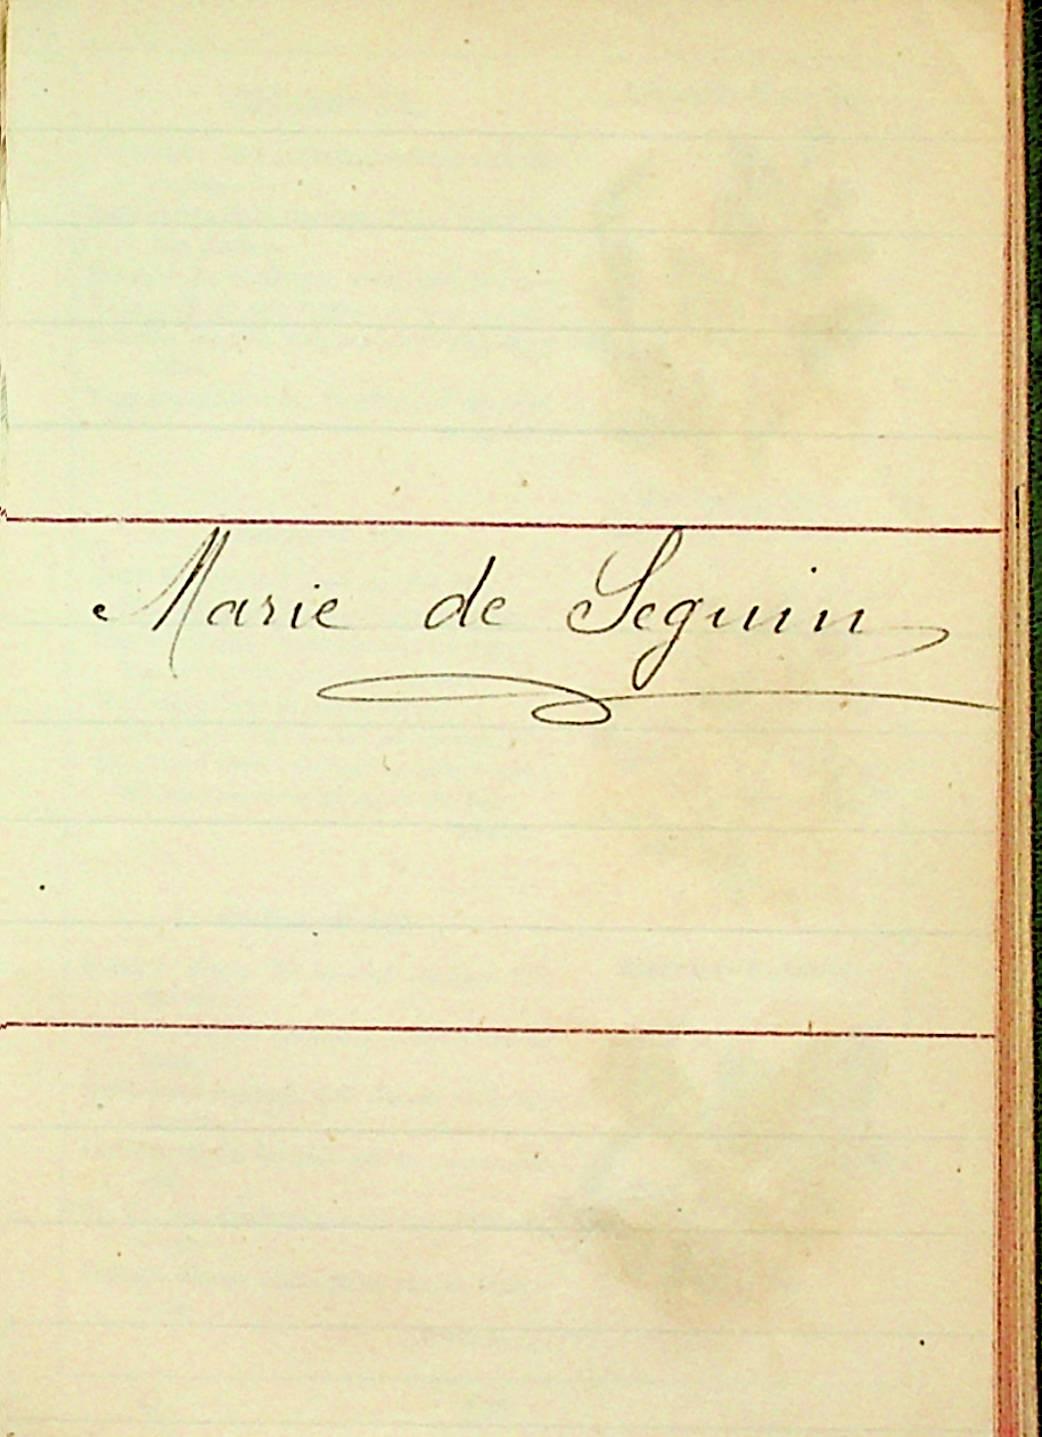 Marie de Seguin